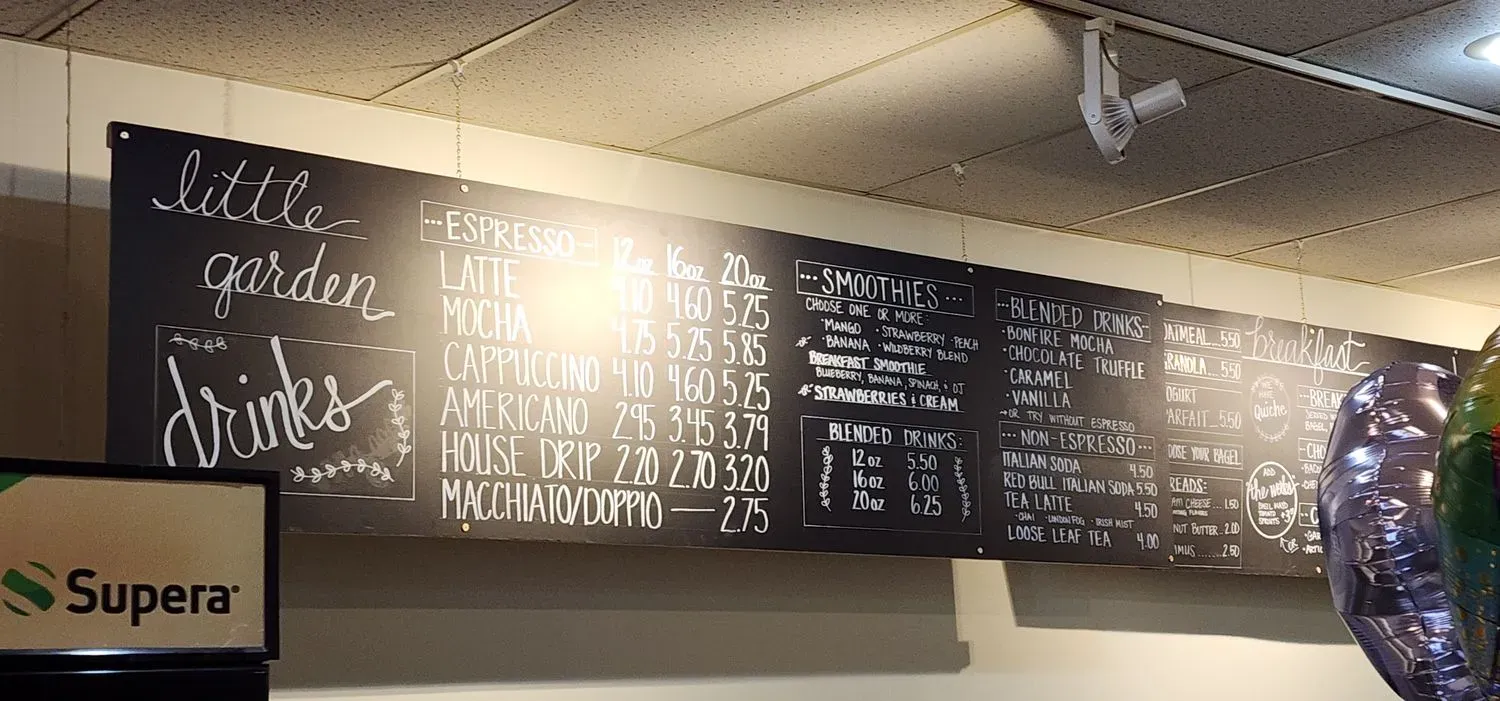 little
garden
drinks
ESPRESSO 12oz 16oz 20oz
LATTE 4.10 4.60 5.25
MOCHA 4.75 5.25 5.85
CAPPUCCINO 4.10 4.60 5.25
AMERICANO 2.95 3.45 3.79
HOUSE DRIP 2.20 2.70 3.20
MACCHIATO/DOPPIO — 2.75
SMOOTHIES
CHOOSE ONE OR MORE:
·MANGO ·STRAWBERRY ·PEACH
·BANANA ·WILDBERRY BLEND
BREAKFAST SMOOTHIE
BLUEBERRY, BANANA, SPINACH, & OJ
STRAWBERRIES & CREAM
BLENDED DRINKS:
12oz 5.50
16oz 6.00
20oz 6.25
BLENDED DRINKS
·BONFIRE MOCHA
·CHOCOLATE TRUFFLE
·CARAMEL
·VANILLA
→OR TRY WITHOUT ESPRESSO
NON-ESPRESSO
ITALIAN SODA 4.50
RED BULL ITALIAN SODA 5.50
TEA LATTE 4.50
·CHAI ·LONDON FOG ·IRISH MIST
LOOSE LEAF TEA 4.00
OATMEAL...5.50
GRANOLA...5.50
OGURT
PARFAIT...5.50
OOSE YOUR BAGEL
READS:
AM CHEESE...1.50
NUT BUTTER..2.00
MUS.......2.50
breakfast
WE HAVE
Quiche
ADD
the works
TOMATO
SPROUTS
BREA
BAGEL,
CHO
Supera